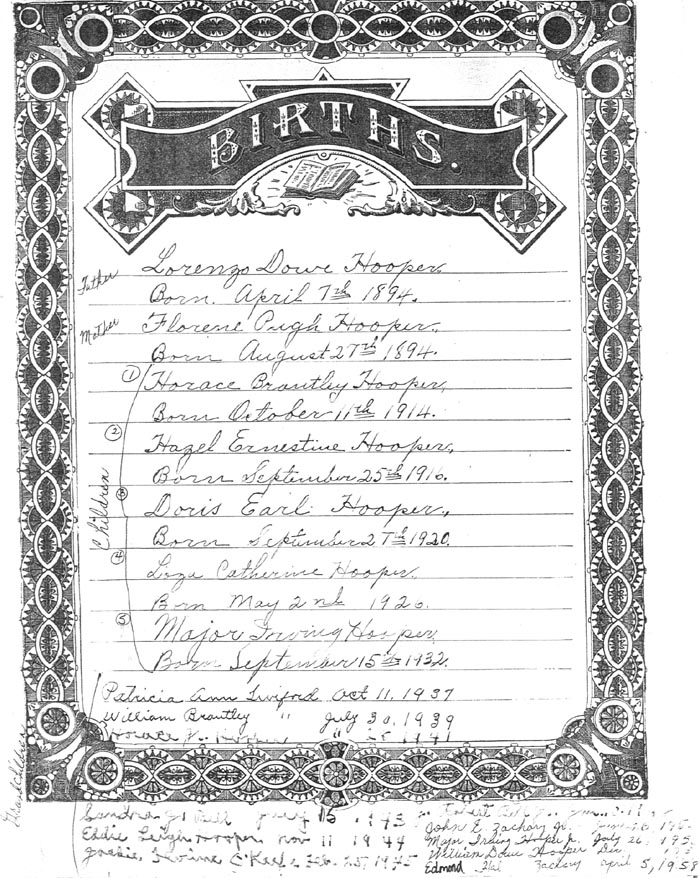 BIRTHS.
Father
Lorenzo Dowe Hooper.
Born. April 7th 1894.
Mother
Florene Pugh Hooper.
Born August 27th 1894.
Children
1 Horace Brantley Hooper,
Born October 11th 1914.
2 Hazel Ernestine Hooper,
Born September 25th 1916.
3 Doris Earl Hooper,
Born September 27th 1920.
4 Catherine Hooper.
Born May 2nd 1926.
5 Major Irving Hooper,
Born September 15th 1932.
Grandchildren
Patricia Ann Twiford Oct 11, 1937
William Brantley " July 30, 1939
Horace Jr. Hooper 1941
Sandra July 15
Eddie Leigh Hooper Nov 11 1944
O'Keefe Feb. 25, 1945
Robert
John E. Zachary Jr.
Major Irving Hooper Jr. July 26,
William Dowe Hooper Dec
Edmond Zachary April 5, 1958